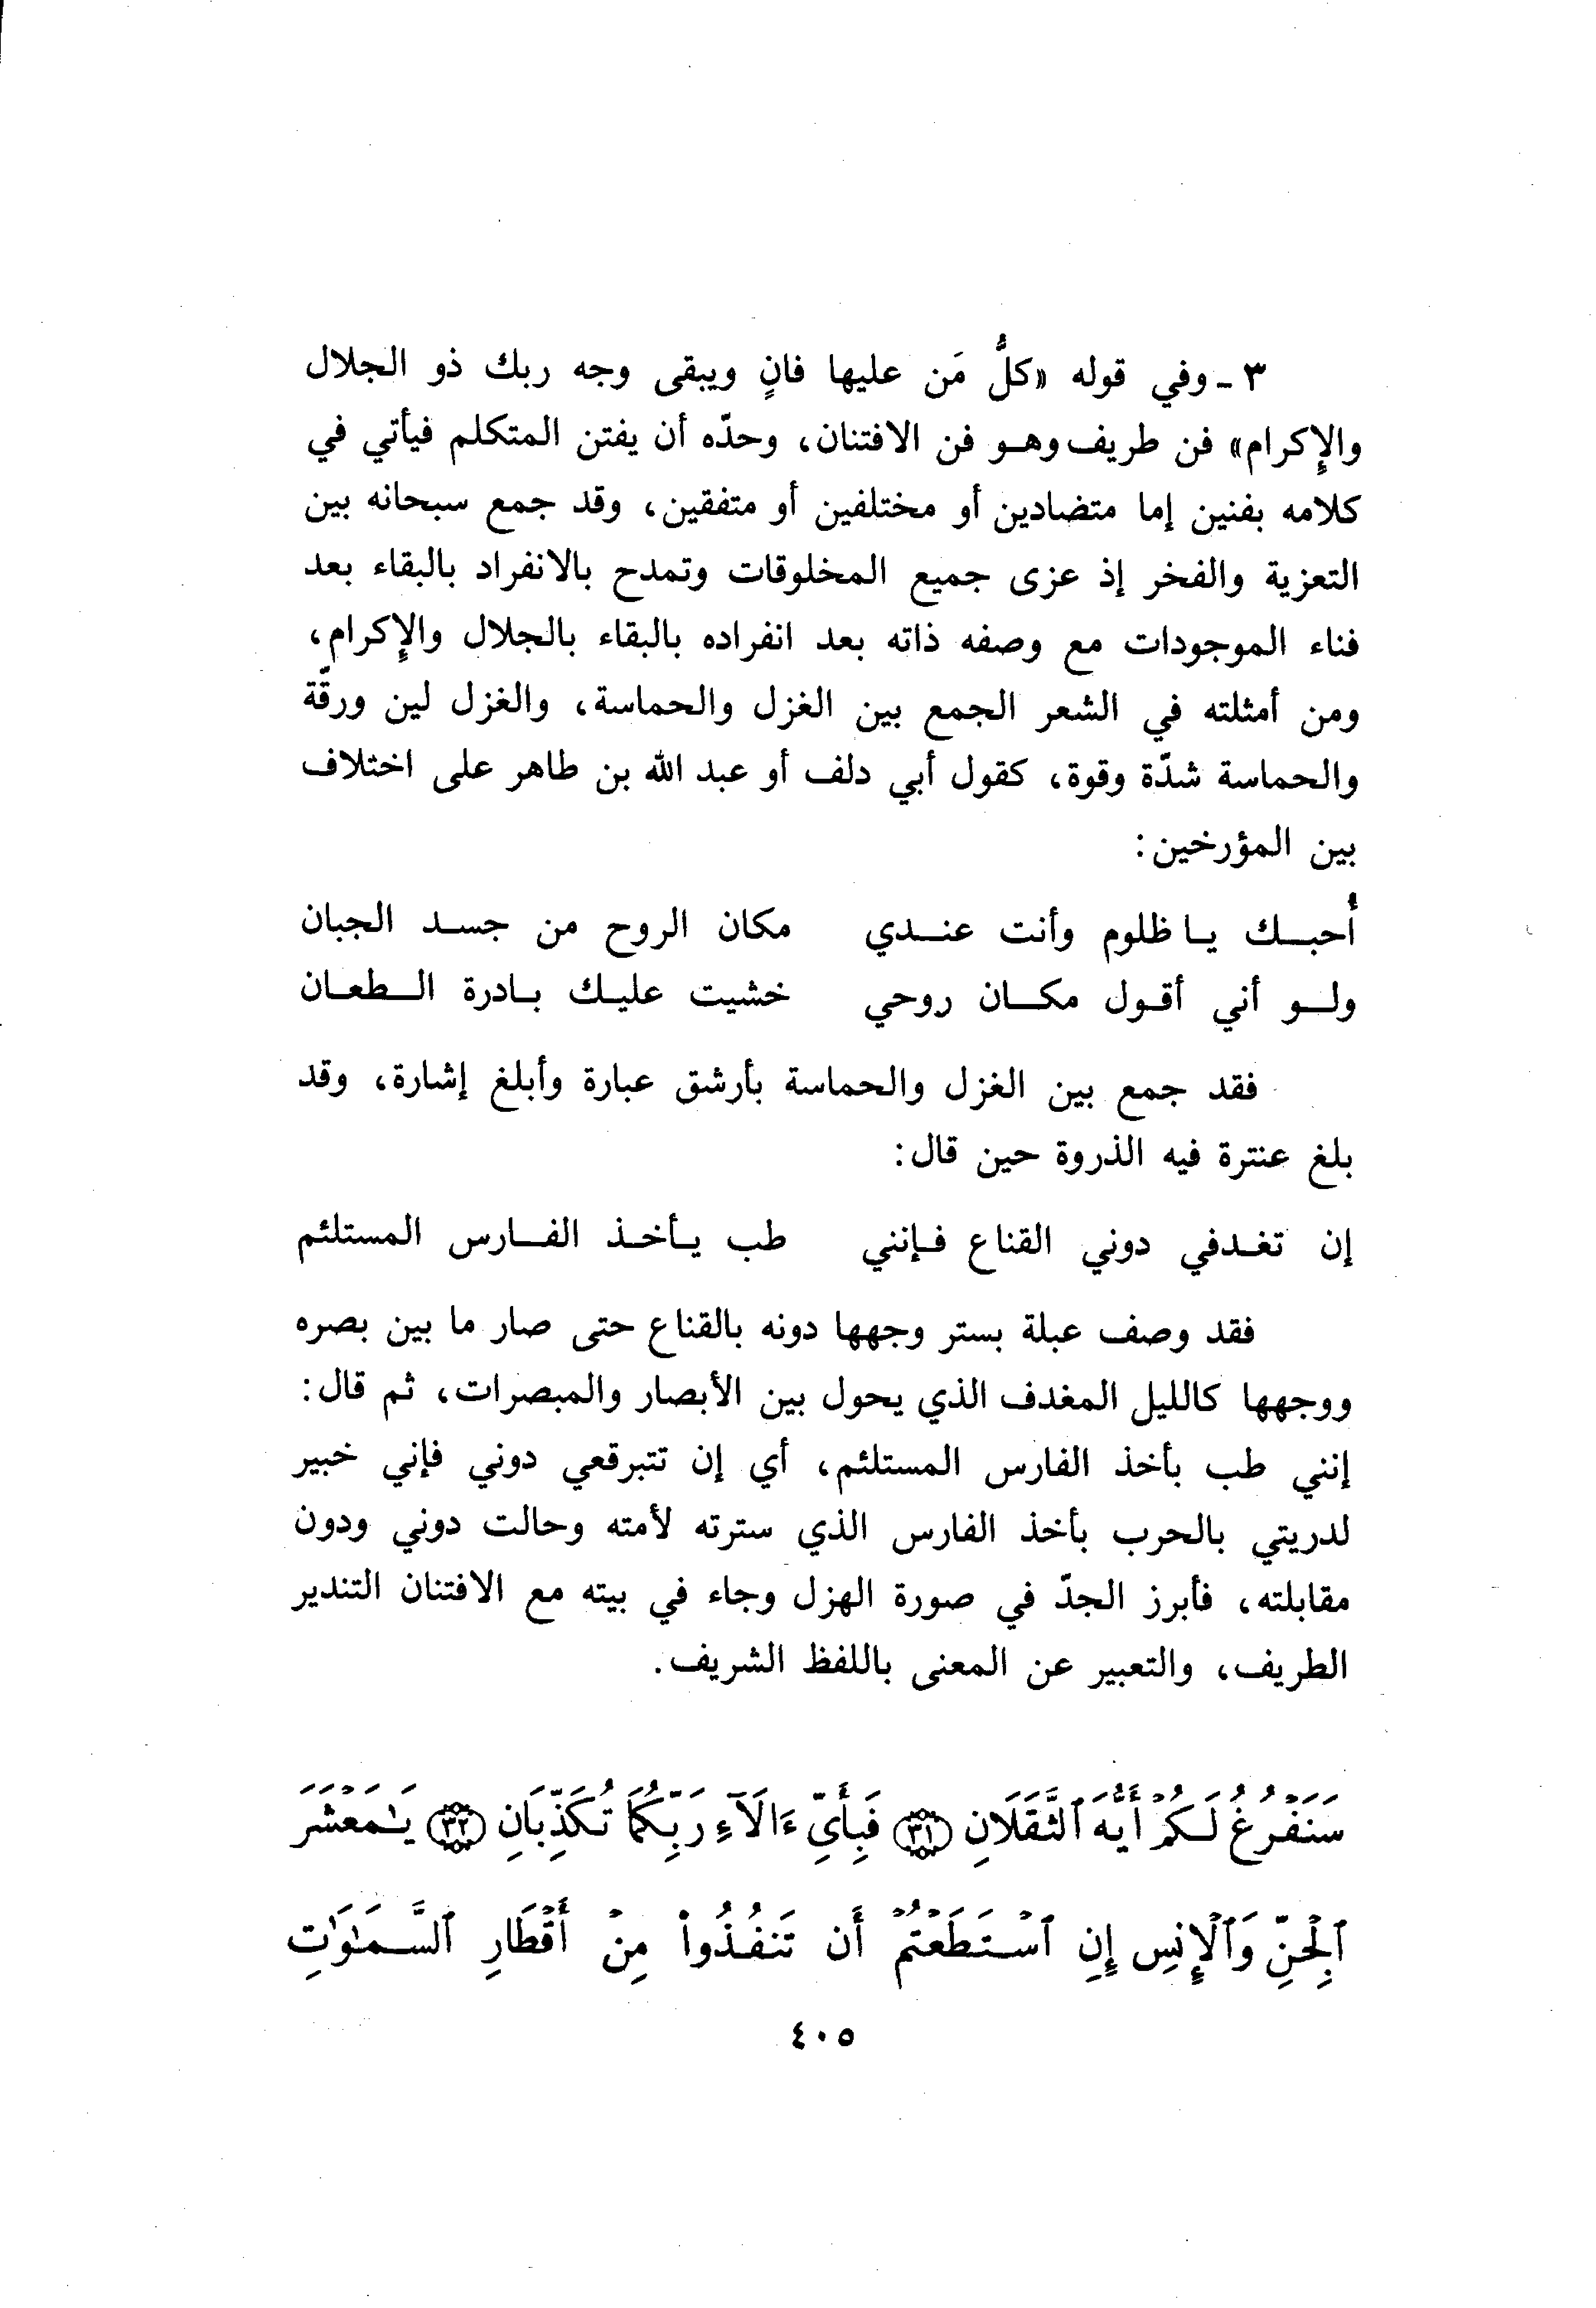 ٣ - وفي قوله «كلُّ مَن عليها فانٍ ويبقى وجه ربك ذو الجلال
والإكرام» فن طريف وهو فن الافتنان، وحدّه أن يفتن المتكلم فيأتي في
كلامه بفنين إما متضادين أو مختلفين أو متفقين، وقد جمع سبحانه بين
التعزية والفخر إذ عزى جميع المخلوقات وتمدح بالانفراد بالبقاء بعد
فناء الموجودات مع وصفه ذاته بعد انفراده بالبقاء بالجلال والإكرام،
ومن أمثلته في الشعر الجمع بين الغزل والحماسة، والغزل لين ورقّة
والحماسة شدّة وقوة، كقول أبي دلف أو عبد الله بن طاهر على اختلاف
بين المؤرخين:
أُحبك يا ظلوم وأنت عندي مكان الروح من جسد الجبان
ولو أني أقول مكان روحي خشيت عليك بادرة الطعان
فقد جمع بين الغزل والحماسة بأرشق عبارة وأبلغ إشارة، وقد
بلغ عنترة فيه الذروة حين قال:
إن تغدفي دوني القناع فإنني طب بأخذ الفارس المستلئم
فقد وصف عبلة بستر وجهها دونه بالقناع حتى صار ما بين بصره
ووجهها كالليل المغدف الذي يحول بين الأبصار والمبصرات، ثم قال:
إنني طب بأخذ الفارس المستلئم، أي إن تتبرقعي دوني فإني خبير
لدريتي بالحرب بأخذ الفارس الذي سترته لأمته وحالت دوني ودون
مقابلته، فأبرز الجدّ في صورة الهزل وجاء في بيته مع الافتنان التندير
الطريف، والتعبير عن المعنى باللفظ الشريف.
سَنَفْرُغُ لَكُمْ أَيُّهَ ٱلثَّقَلَانِ ﴿٣١﴾ فَبِأَيِّ ءَالَآءِ رَبِّكُمَا تُكَذِّبَانِ ﴿٣٢﴾ يَـٰمَعْشَرَ
ٱلْجِنِّ وَٱلْإِنسِ إِنِ ٱسْتَطَعْتُمْ أَن تَنفُذُوا۟ مِنْ أَقْطَارِ ٱلسَّمَـٰوَٰتِ
٤٠٥